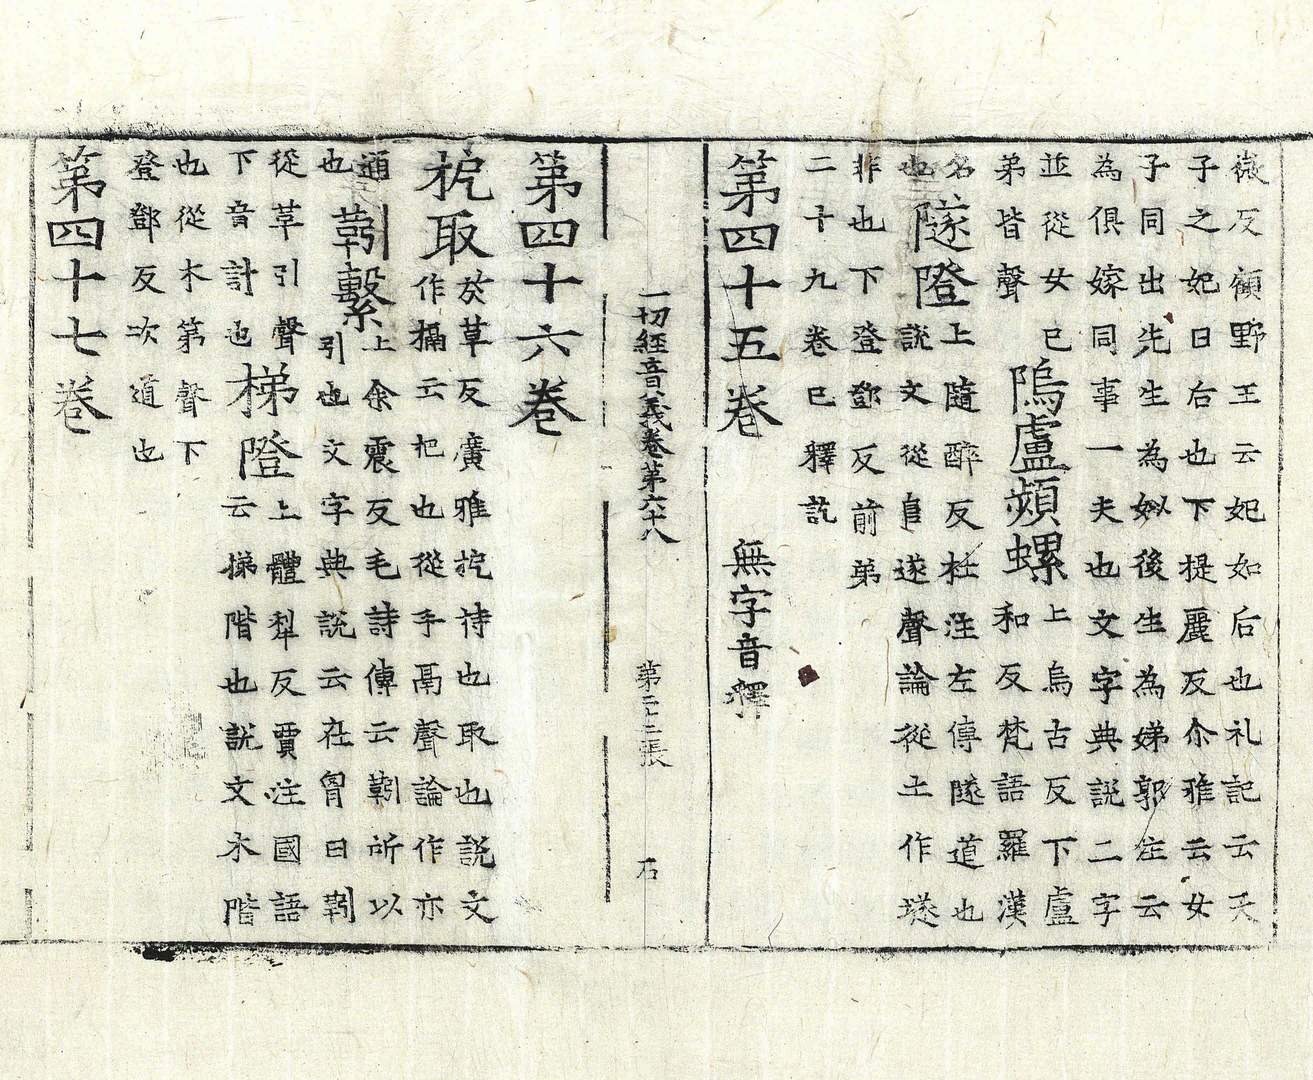 微反顧野王云妃如后也礼記云天
子之妃曰后也下提麗反尒雅云女
子同出先生為姒後生為娣郭注云
為俱嫁同事一夫也文字典說二字
並從女巳弟皆聲
隖盧頻螺上烏古反下盧和反梵語羅漢名
隧隥上隨醉反杜注左傳隧道也說文從𨸏遂聲論從土作㙽非也下登鄧反前第
二十九卷已釋訖
第四十五卷 無字音釋
一切經音義卷第六十八 第二十二張 石
第四十六卷
枙取於革反廣雅抳持也取也說文作搹云把也從手鬲聲論作亦通也
靷繫上余震反毛詩傳云靷所以引也文字典說云在胷曰靷從革引聲下音計也
梯隥上體犁反賈注國語云梯階也說文木階也從木第聲下登鄧反次道也
第四十七卷